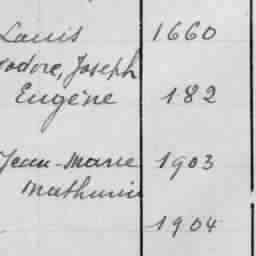 Louis 1660
Joseph
Eugène 182
Jean-Marie 1903
Mathurin
1904